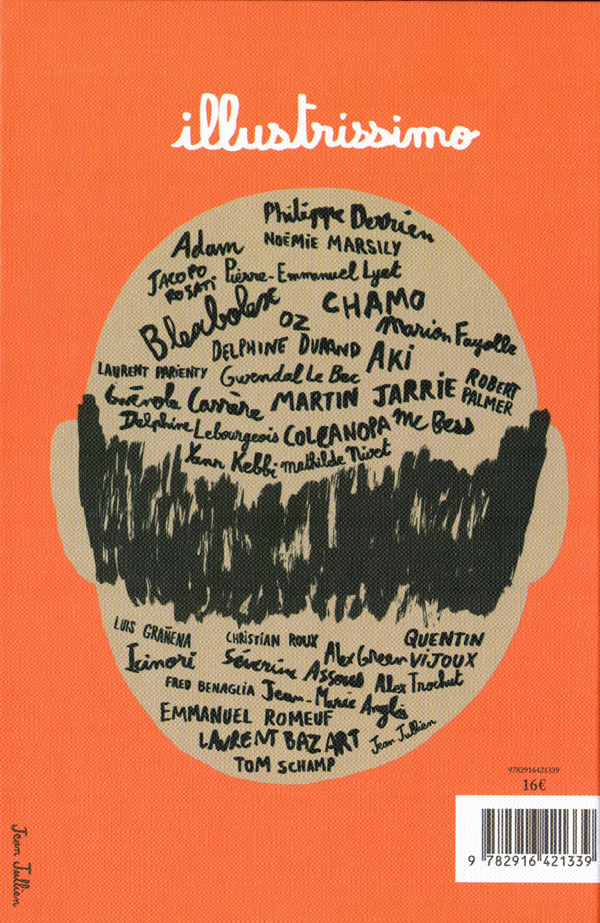 illustrissimo
Philippe Derrien
Adam NOËMIE MARSILY
JACOPO ROSATI Pierre-Emmanuel Lyet
Blexbolex OZ CHAMO
Marion Fayolle
DELPHINE DURAND AKI
LAURENT PARIENTY Gwendal Le Bec
ROBERT PALMER
Gwénola Carrère MARTIN JARRIE
Delphine Lebourgeois COLCANOPA Mc Bess
Yann Kebbi Mathilde Nivet
LUIS GRAÑENA CHRISTIAN ROUX QUENTIN VIJOUX
Icinori Séverine Assous Alex Green
FRED BENAGLIA Jean-Marie Anglès Alex Trochut
EMMANUEL ROMEUF
LAURENT BAZART Jean Jullien
TOM SCHAMP
9782916421339
16€
9 782916 421339
Jean Jullien